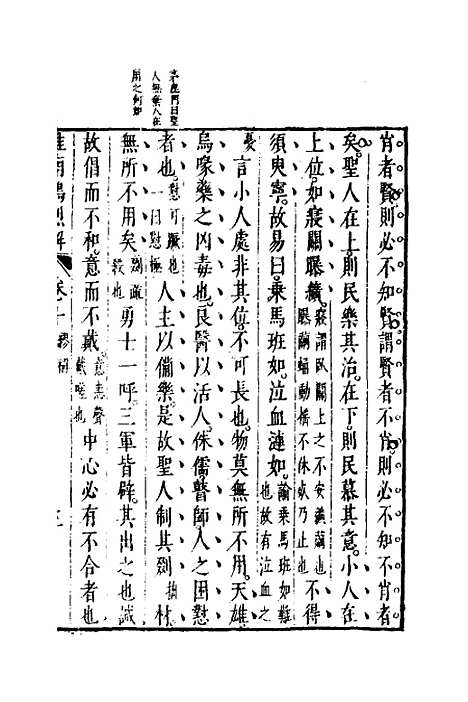 茅鹿門曰聖
人無棄人在
用之何如
肖者賢則必不知賢謂賢者不肖則必不知不肖者
矣聖人在上則民樂其治在下則民慕其意小人在
上位如寢關曝纊寢謂臥關上之不安纊繭也曝繭蛹動搖不休死乃止也不得
須臾寧故易曰乘馬班如泣血漣如諭乘馬班如難也故有泣血之
憂言小人處非其位不可長也物莫無所不用天雄
烏喙藥之凶毒也良醫以活人侏儒瞽師人之困慰
者也慰可蹶也一曰慰極人主以備樂是故聖人制其剟材
無所不用矣勇士一呼三軍皆辟其出之也誠
故倡而不和意而不戴意恚聲戴嗟也中心必有不合者也
淮南鴻烈解 卷十 繆稱